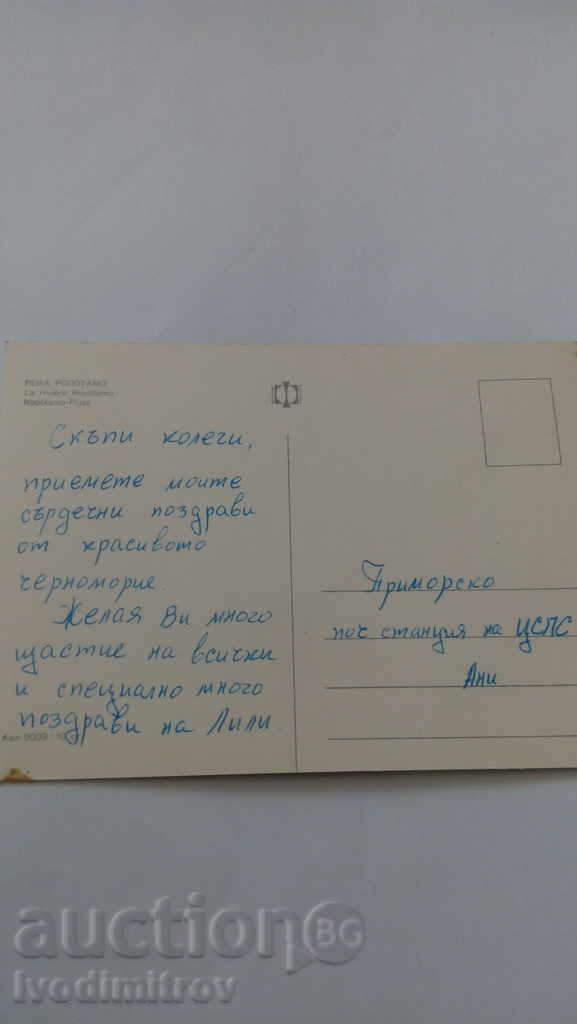 РЕКА РОПОТАМО
La rivière Ropotamo
Ropotamo-Fluss
Скъпи колеги,
приемете моите
сърдечни поздрави
от красивото
черноморие.
Желая Ви много
щастие на всички
и специално много
поздрави на Лили.
Приморско
поч станция на ЦСПС
Ани
auctionBG
Ivodimitrov